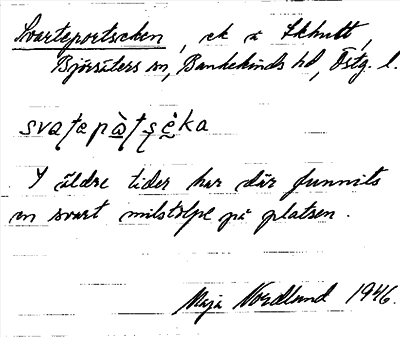 Svarteportseken, ek å Skhult,
Björsäters sn, Bankekinds hd, Östg. l.
I äldre tider har där funnits
en svart milstolpe på platsen.
Maja Nordlund 1946.